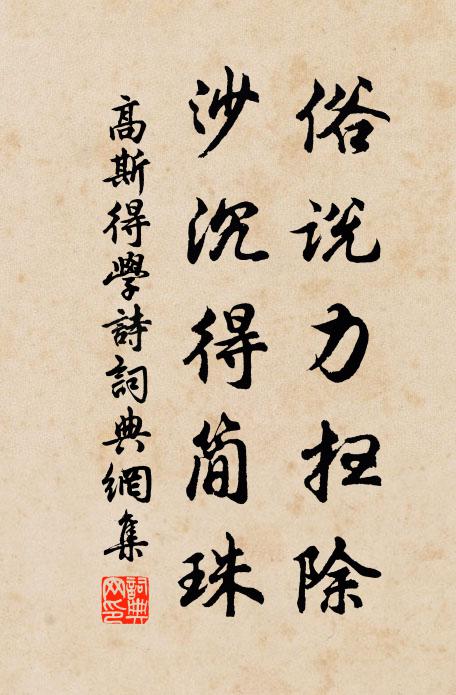 俗说力扫除
沙沉得简珠
高斯得學詩詞典網集
詞典網印